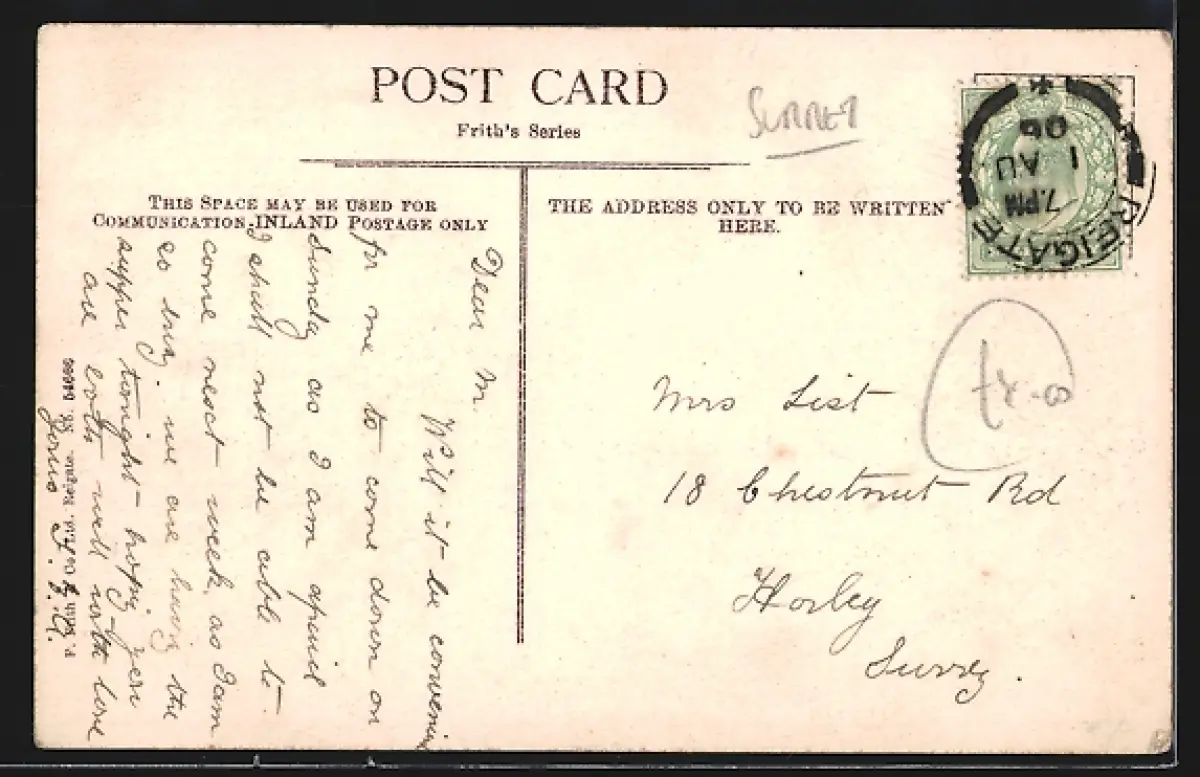 POST CARD
Frith's Series
SURREY
THIS SPACE MAY BE USED FOR
COMMUNICATION.INLAND POSTAGE ONLY
THE ADDRESS ONLY TO BE WRITTEN
HERE.
REIGATE
7.PM
1 AU
06
Dear M.
Will it be conveni
for me to come down on
Sunday as I am afraid
I shall not be able to
come next week, as I am
so busy. we are having the
supper tonight - hoping you
are both well with love
Yours
Mrs List
18 Chestnut Rd
Horley
Surrey.
F. Frith & Co Ltd. Reigate. No.